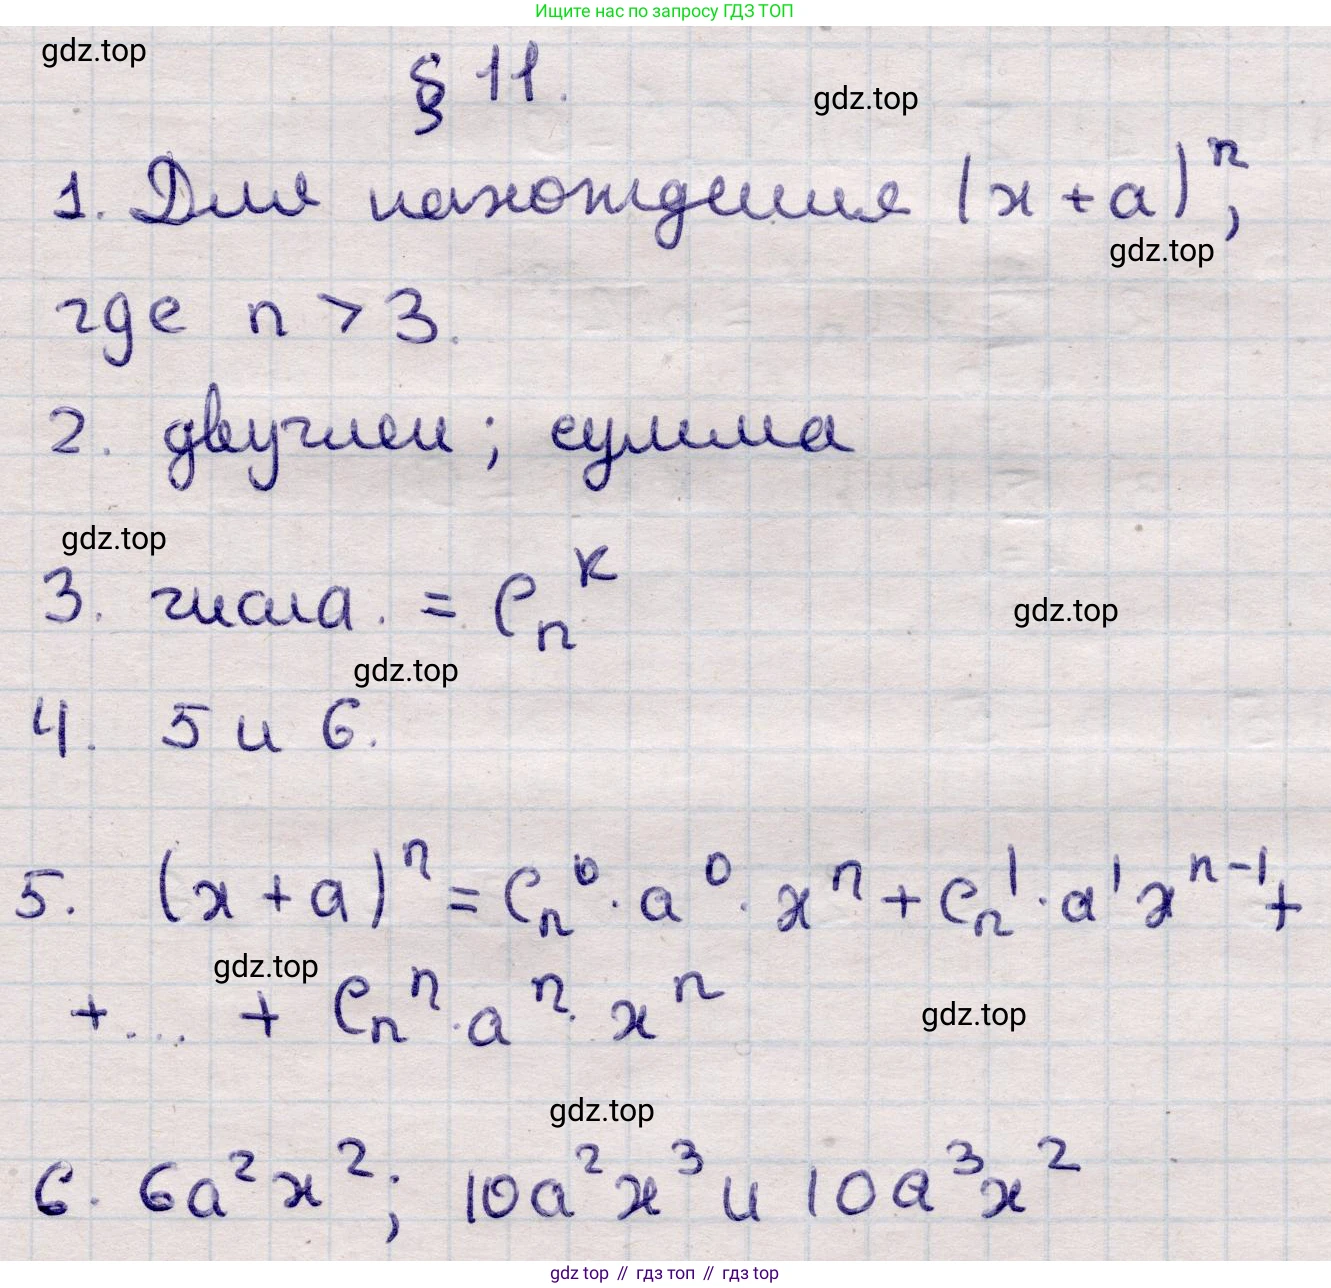 Ищите нас по запросу ГДЗ ТОП
gdz.top
§ 11.
gdz.top
1. Для нахождения (x + a)ⁿ,
gdz.top
где n > 3.
2. двучлен; сумма
gdz.top
3. числа. = Cₙᵏ
gdz.top
gdz.top
4. 5 и 6.
5. (x + a)ⁿ = Cₙ⁰ · a⁰ · xⁿ + Cₙ¹ · a¹ xⁿ⁻¹ +
gdz.top
+ ... + Cₙⁿ · aⁿ · xⁿ
gdz.top
gdz.top
6. 6a²x²; 10a²x³ и 10a³x²
gdz top // гдз топ // гдз top